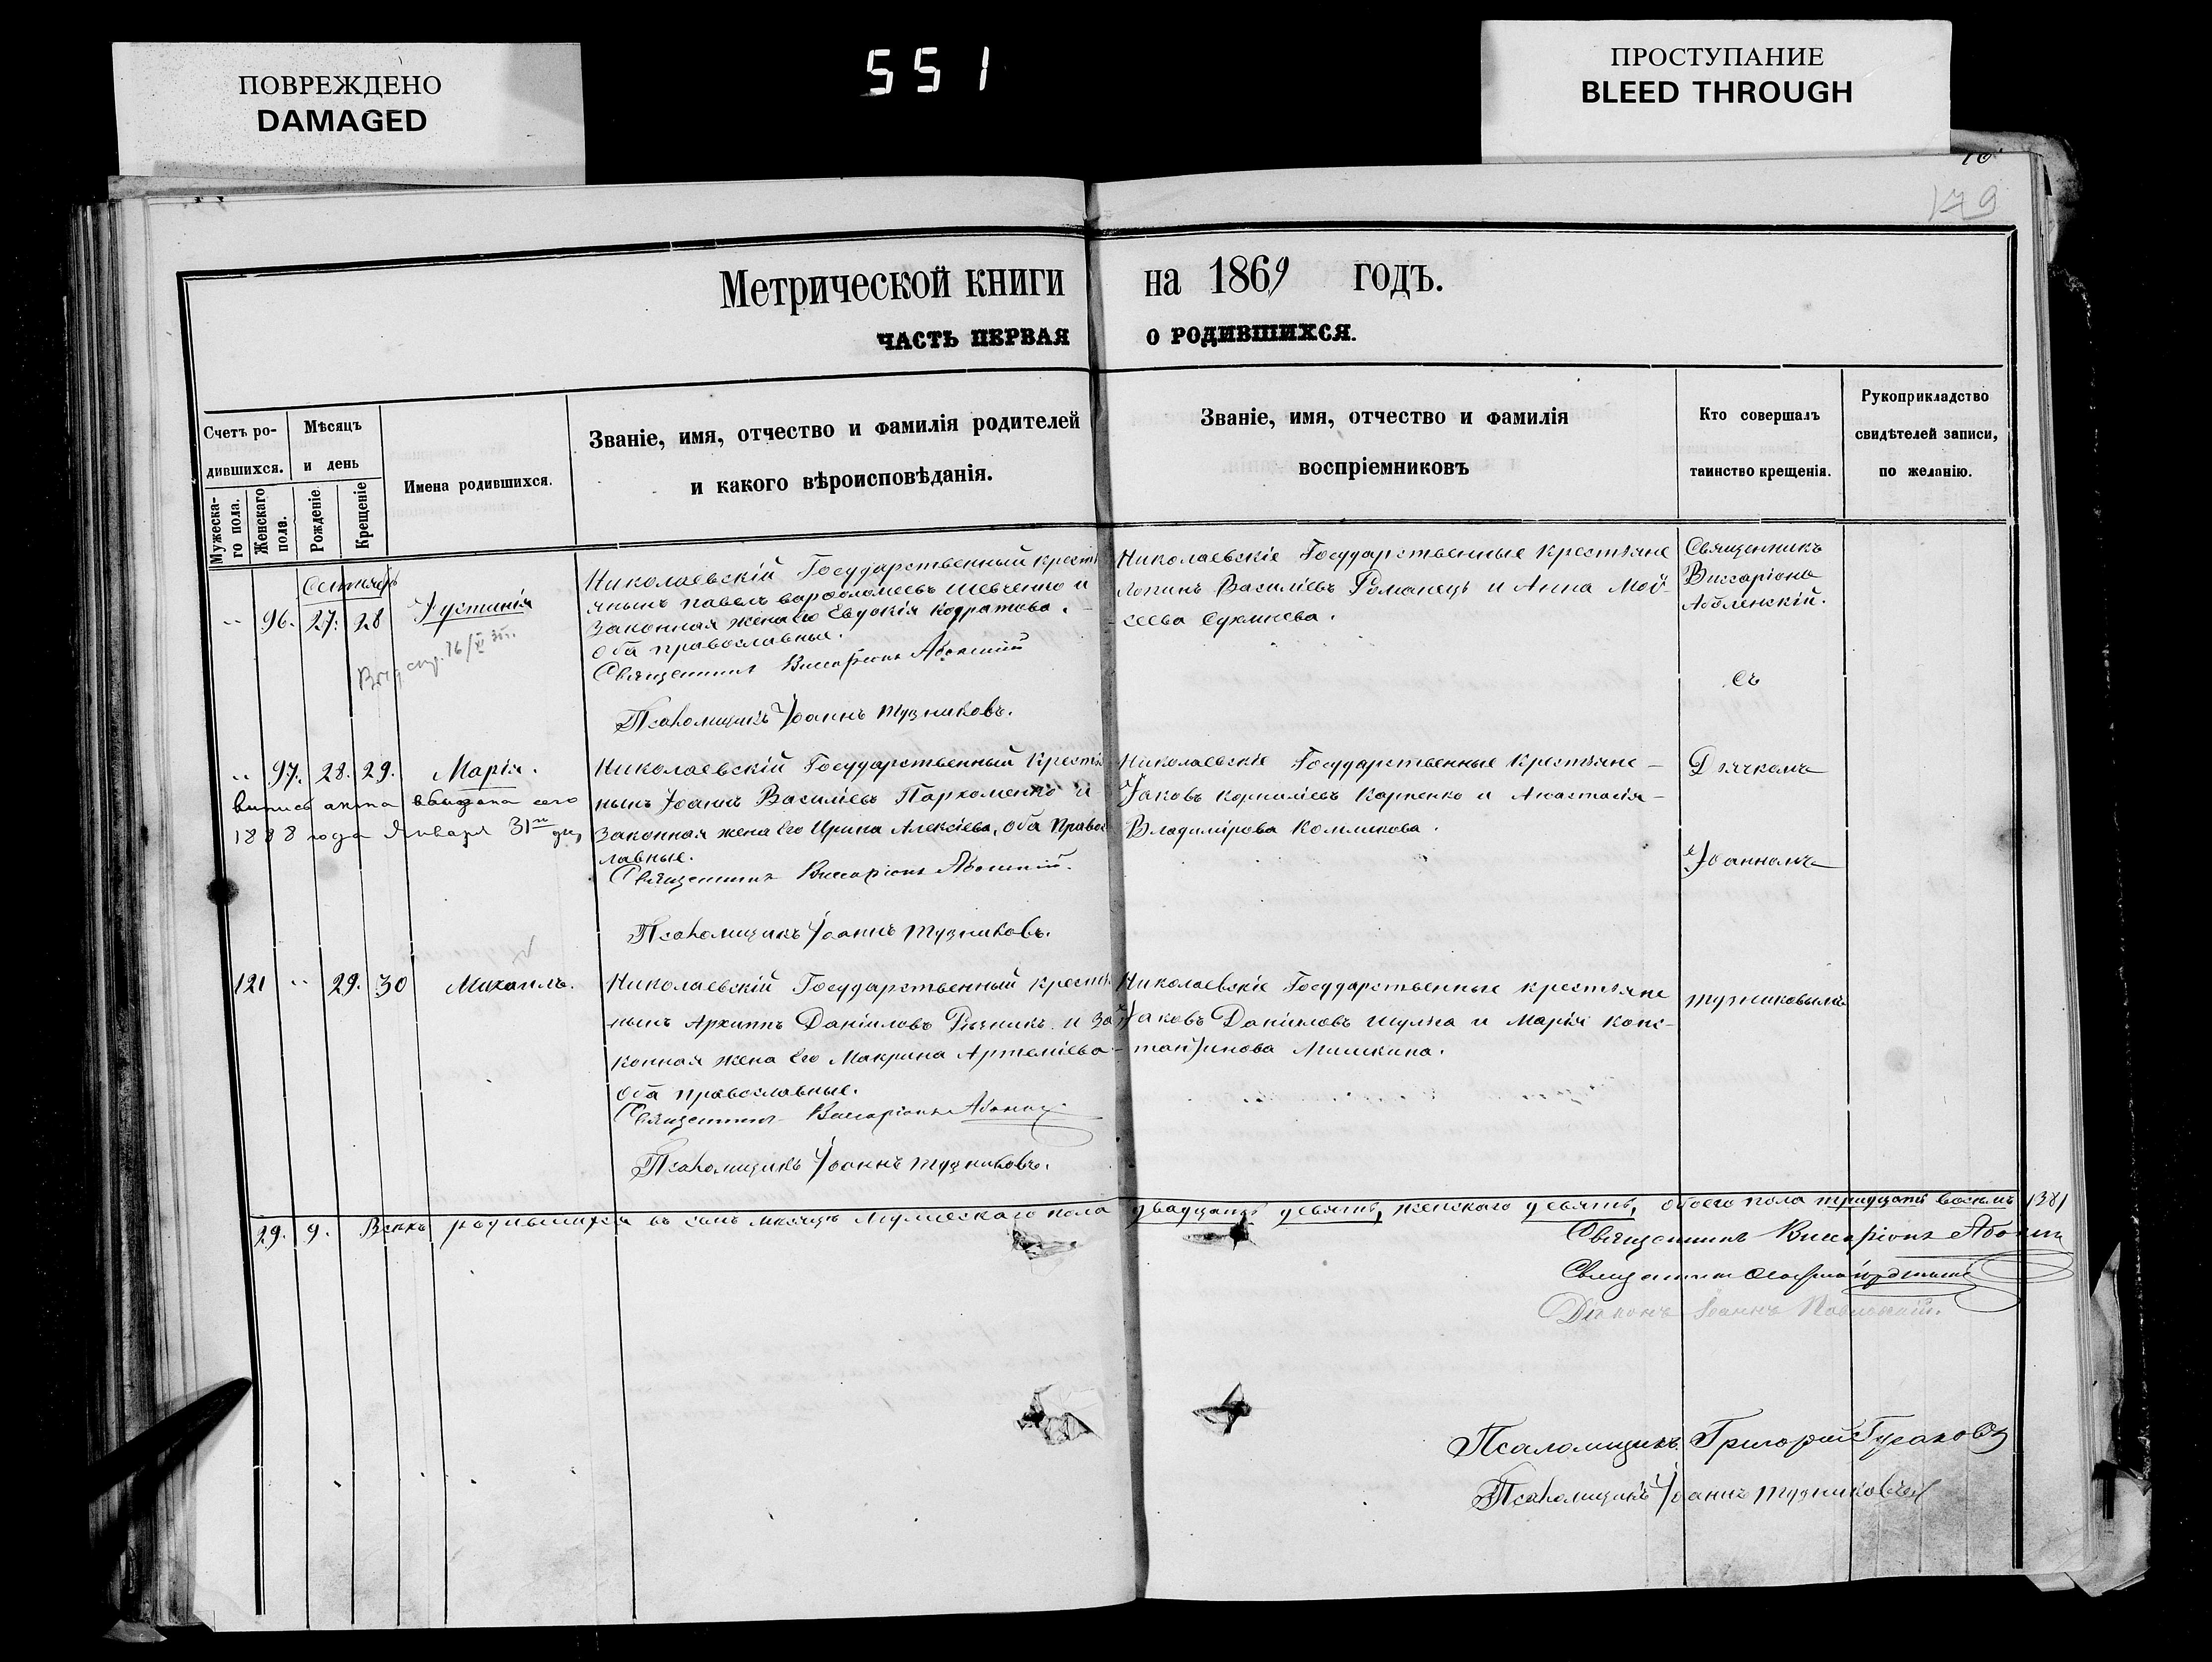 ПОВРЕЖДЕНО
DAMAGED
551
ПРОСТУПАНИЕ
BLEED THROUGH
179
Метрической книги на 1869 годъ.
ЧАСТЬ ПЕРВАЯ О РОДИВШИХСЯ.
Счетъ родившихся.
Мужескаго пола.
Женскаго пола.
Мѣсяцъ и день
Рожденіе.
Крещеніе
Имена родившихся.
Званіе, имя, отчество и фамилія родителей
и какого вѣроисповѣданія.
Званіе, имя, отчество и фамилія
воспріемниковъ
Кто совершалъ
таинство крещенія.
Рукоприкладство
свидѣтелей записи,
по желанію.
Сентябрь
" 96. 27. 28 Іустинія
Николаевскій Государственный крестья
янинъ Павелъ Варфоломеевъ Шевченко и
законная жена его Евдокія Кодратова.
оба православные.
Священникъ Виссаріонъ
Псаломщикъ Іоаннъ Тузниковъ.
Николаевскіе Государственные крестьяне
Логинъ Василіевъ Романецъ и Анна Мой-
сеева
Священникъ
Виссаріонъ
Аболенскій.
съ
" 97. 28. 29. Марія.
выпись акта выдана сего
1888 года Января 31го дня
Николаевскій Государственный Крестья
нинъ Іоаннъ Василіевъ Пархоменко и
законная жена его Ирина Алексіева, оба Правос
лавные.
Священникъ Виссаріонъ
Псаломщикъ Іоаннъ Тузниковъ.
Николаевскіе Государственные крестьяне
Іаковъ Корниліевъ Карпенко и Анастасія
Владимірова Колмикова.
Дьячкомъ
Іоанномъ
121 " 29. 30 Михаилъ.
Николаевскій Государственный крестья
нинъ Архиппъ Даніиловъ и за
конная жена его Макрина Артеміева
оба православные.
Священникъ Виссаріонъ
Псаломщикъ Іоаннъ Тузниковъ.
Николаевскіе Государственные крестьяне
Іаковъ Даніиловъ Шулга и Марія Конс-
тантинова Мишкина.
Тузниковымъ
29. 9. Всѣхъ родившихся въ семъ мѣсяцѣ мужескаго пола двадцать девять, женскаго девять, обоего пола тридцать восьмъ /38/
Священникъ Виссаріонъ
Священникъ
Діаконъ Іоаннъ
Псаломщикъ Григорій Гусаковъ
Псаломщикъ Іоаннъ Тузниковъ